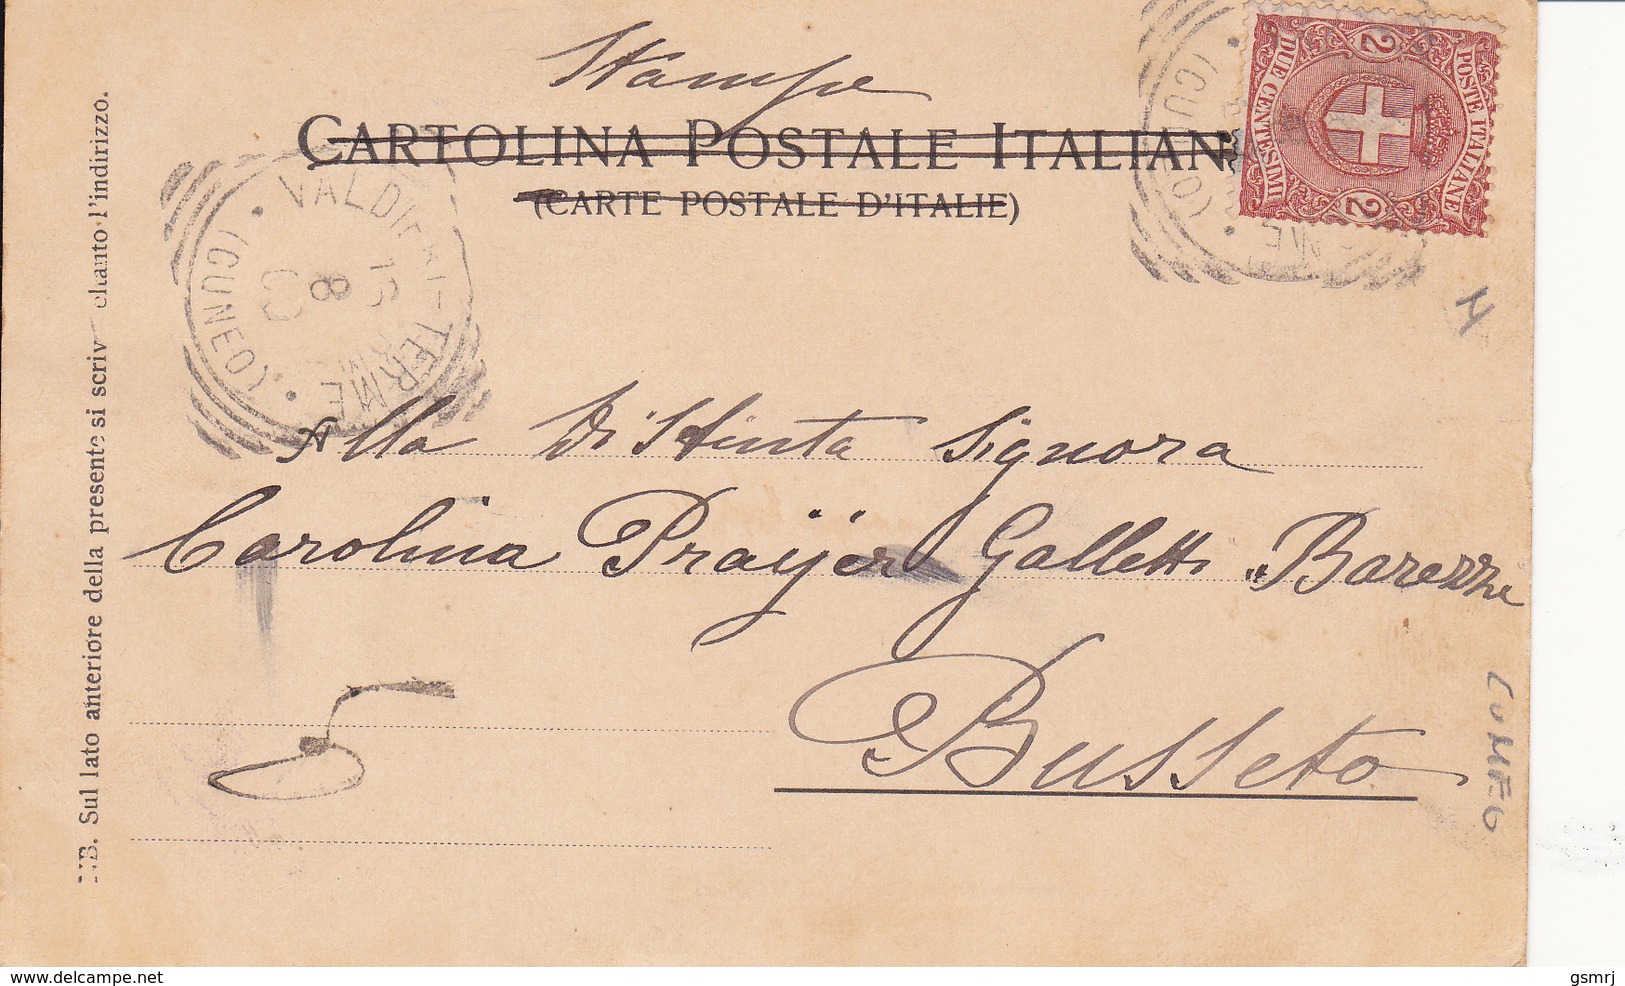 Stampe
CARTOLINA POSTALE ITALIAN
(CARTE POSTALE D'ITALIE)
POSTE ITALIANE
DUE CENTESIMI
2
2
VALDIERI-TERME
(CUNEO)
15
8
03
(CUNEO)
Alla Distinta Signora
Carolina Prayer Galletti Barezzi
Busseto
NB. Sul lato anteriore della presente si scriv chanto l'indirizzo.
CUNEO
delcampe.net
gsmrj